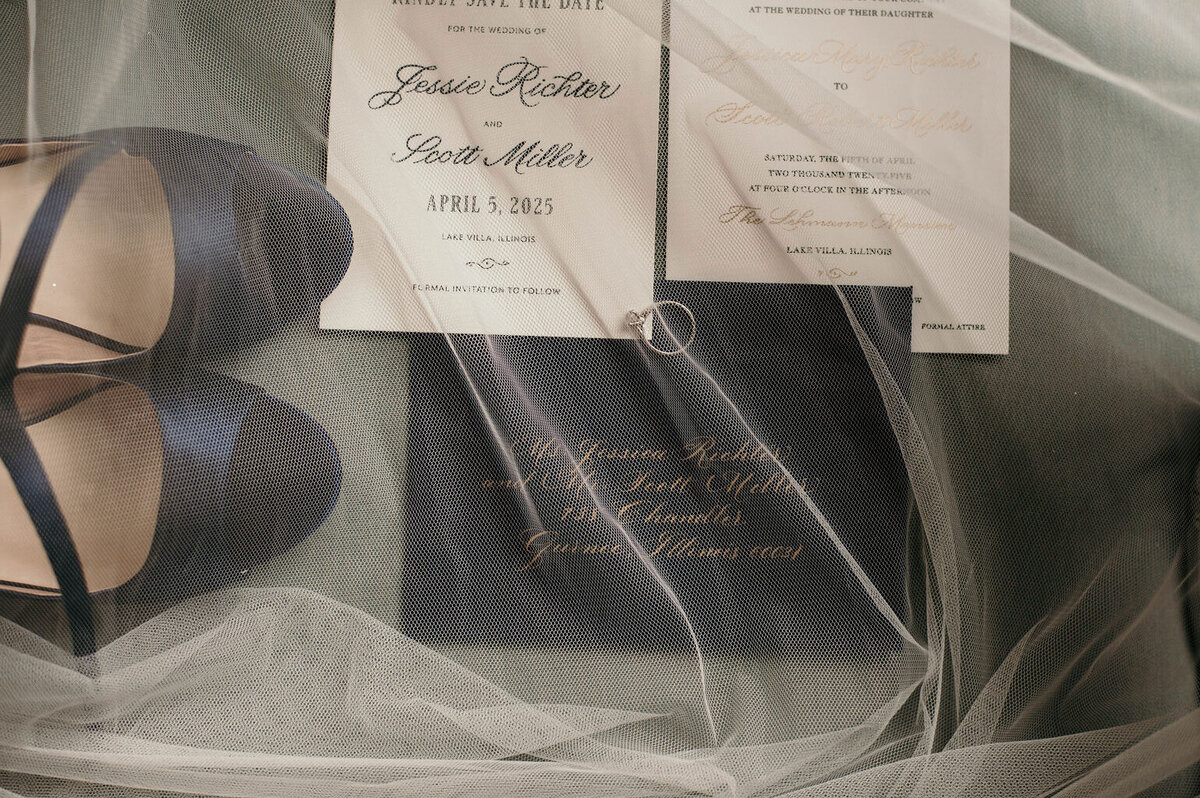 KINDLY SAVE THE DATE
FOR THE WEDDING OF
Jessie Richter
AND
Scott Miller
APRIL 5, 2025
LAKE VILLA, ILLINOIS
FORMAL INVITATION TO FOLLOW
AT THE WEDDING OF THEIR DAUGHTER
Jessica Mary Richter
TO
Scott Miller
SATURDAY, THE FIFTH OF APRIL
TWO THOUSAND TWENTY-FIVE
AT FOUR O'CLOCK IN THE AFTERNOON
The Lehmann Mansion
LAKE VILLA, ILLINOIS
FORMAL ATTIRE
Jessica Richter
and Mr. Scott Miller
Chandler
Illinois